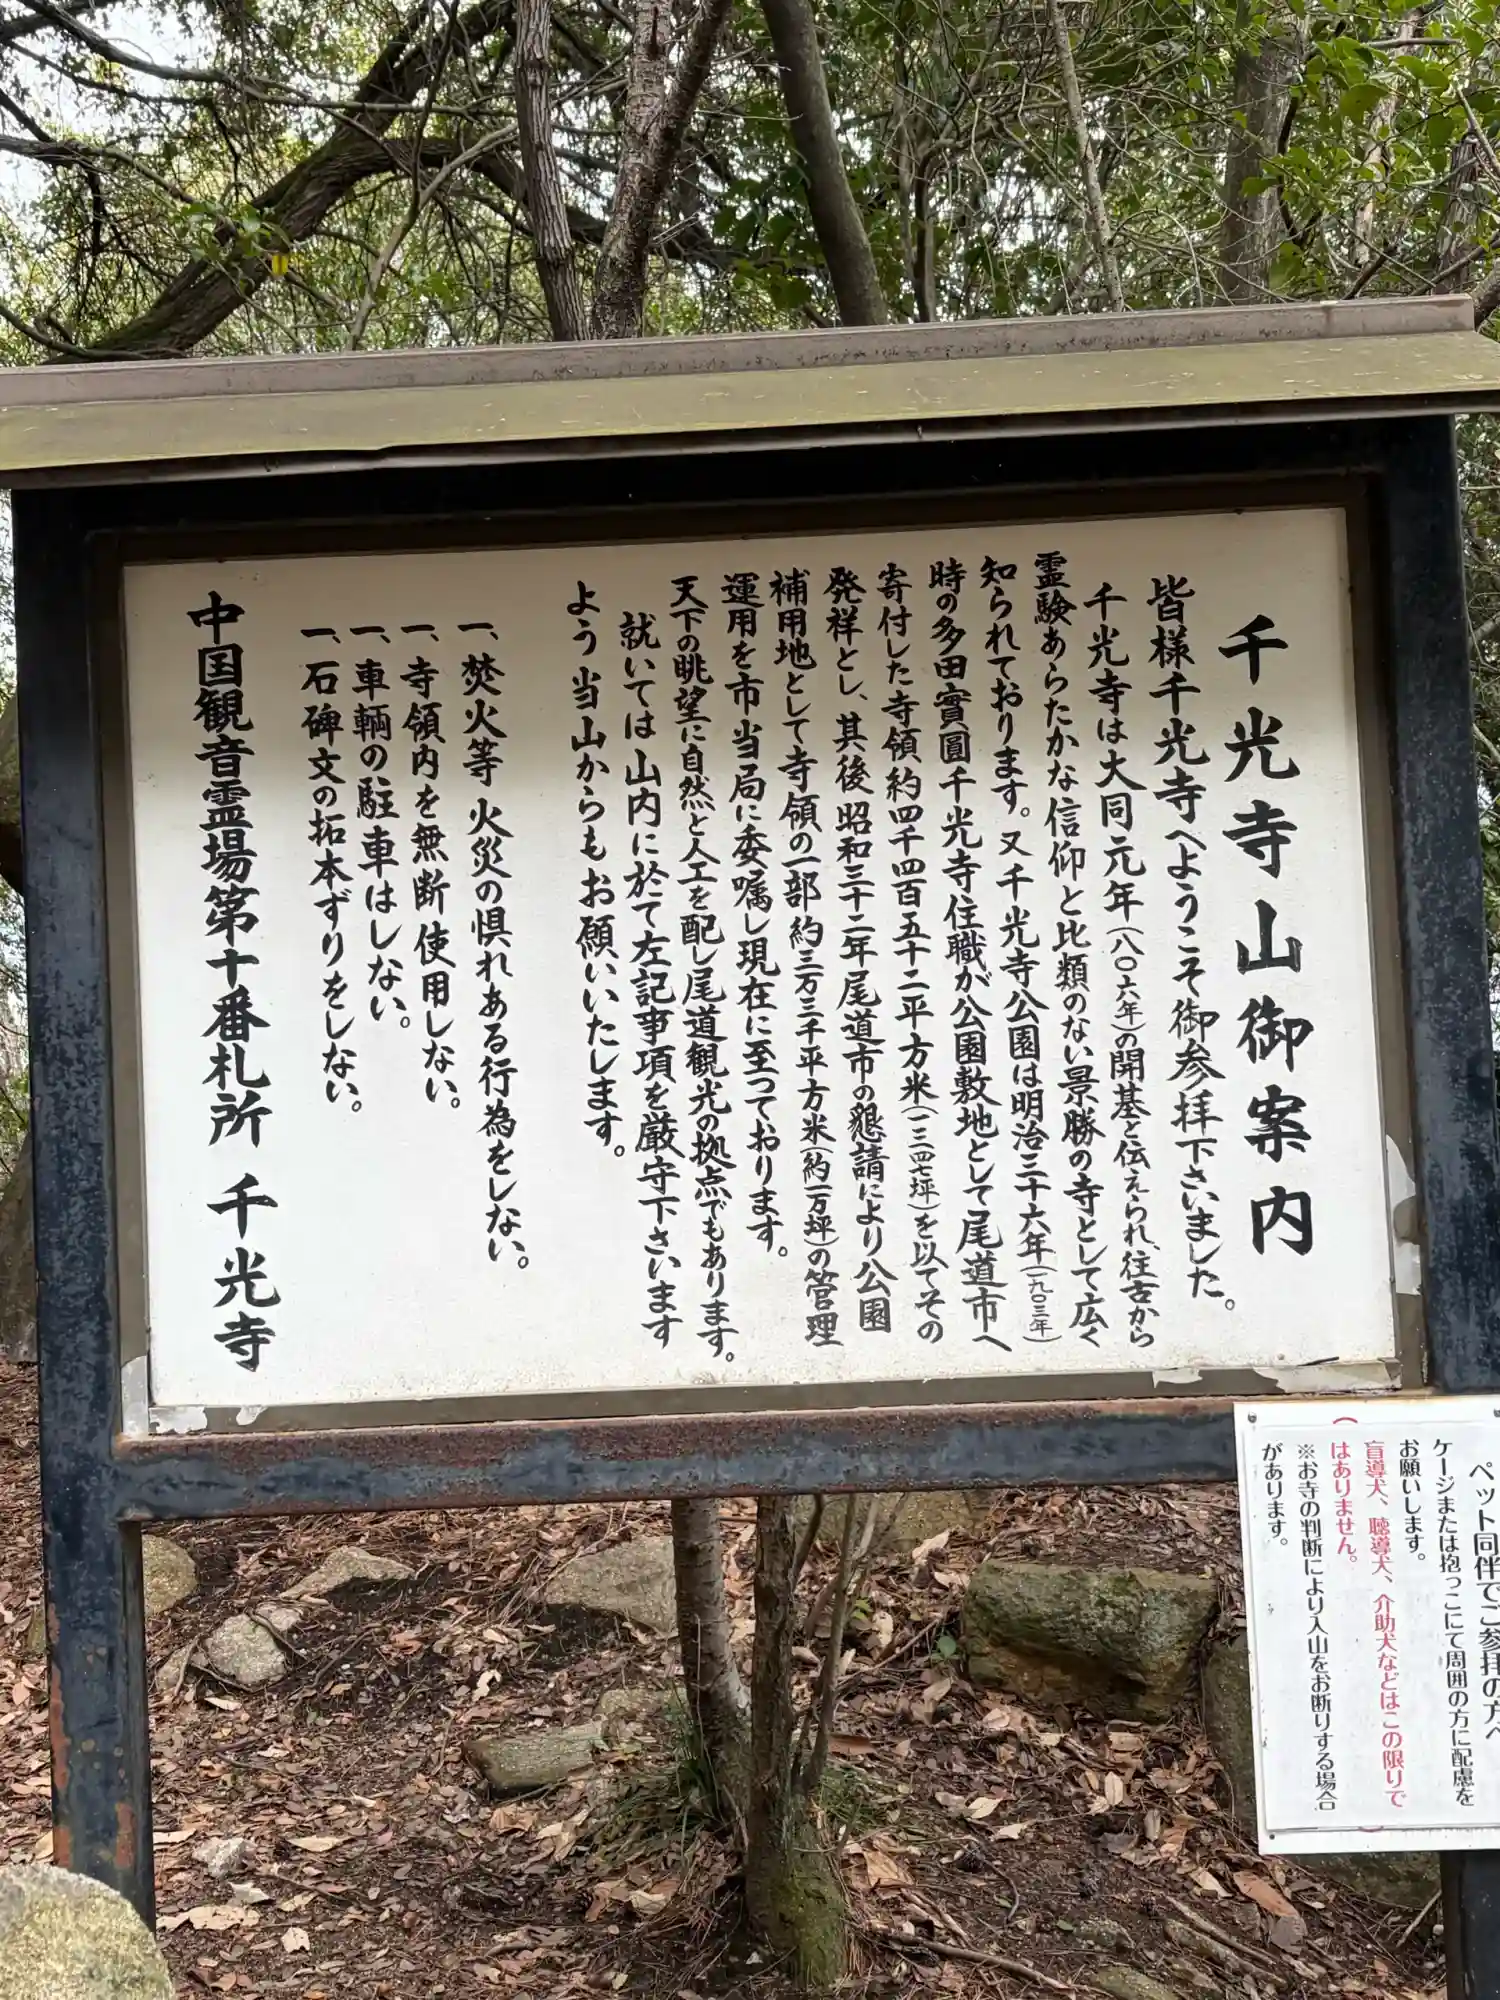 千光寺山御案内
皆様千光寺へようこそ御参拝下さいました。
千光寺は大同元年(八〇六年)の開基と伝えられ、往古から
霊験あらたかな信仰と比類のない景勝の寺として広く
知られております。又千光寺公園は明治三十六年(一九〇三年)
時の多田實圓千光寺住職が公園敷地として尾道市へ
寄付した寺領約四千四百五十二平方米(一三四七坪)を以てその
発祥とし、其後昭和三十二年尾道市の懇請により公園
補用地として寺領の一部約三万三千平方米(約一万坪)の管理
運用を市当局に委嘱し現在に至っております。
天下の眺望に自然と人工を配し尾道観光の拠点でもあります。
就いては山内に於て左記事項を厳守下さいます
よう当山からもお願いいたします。
一、焚火等 火災の惧れある行為をしない。
一、寺領内を無断使用しない。
一、車輌の駐車はしない。
一、石碑文の拓本ずりをしない。
中国観音霊場第十番札所 千光寺
ペット同伴でご参拝の方へ
ケージまたは抱っこにて周囲の方に配慮を
お願いします。
(盲導犬、聴導犬、介助犬などはこの限りで
はありません。)
※お寺の判断により入山をお断りする場合
があります。